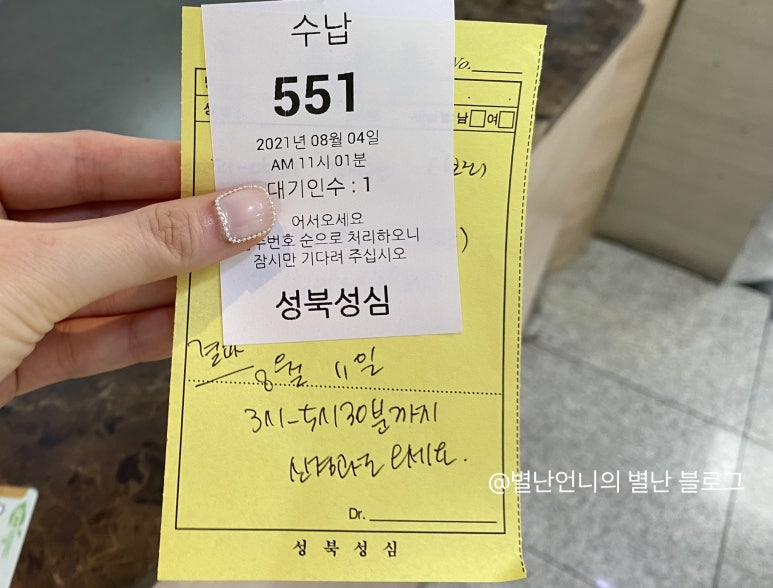 수납
551
2021년 08월 04일
AM 11시 01분
대기인수 : 1
어서오세요
번호 순으로 처리하오니
잠시만 기다려 주십시오
성북성심
No.
남 여
결과 8월 11일
3시-5시30분까지
신경과로 오세요.
@별난언니의 별난 블로그
Dr.
성북성심